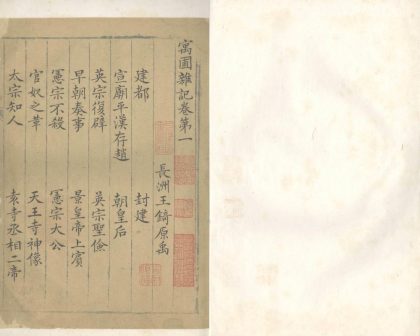 寓圃雜記卷第一
長洲王錡原禹
建都
封建
宣廟平漢存趙
朝皇后
英宗復辟
英宗聖儉
早朝奏事
景皇帝上賓
憲宗不殺
憲宗大公
官奴之革
天王寺神像
太宗知人
袁寺丞相二帝